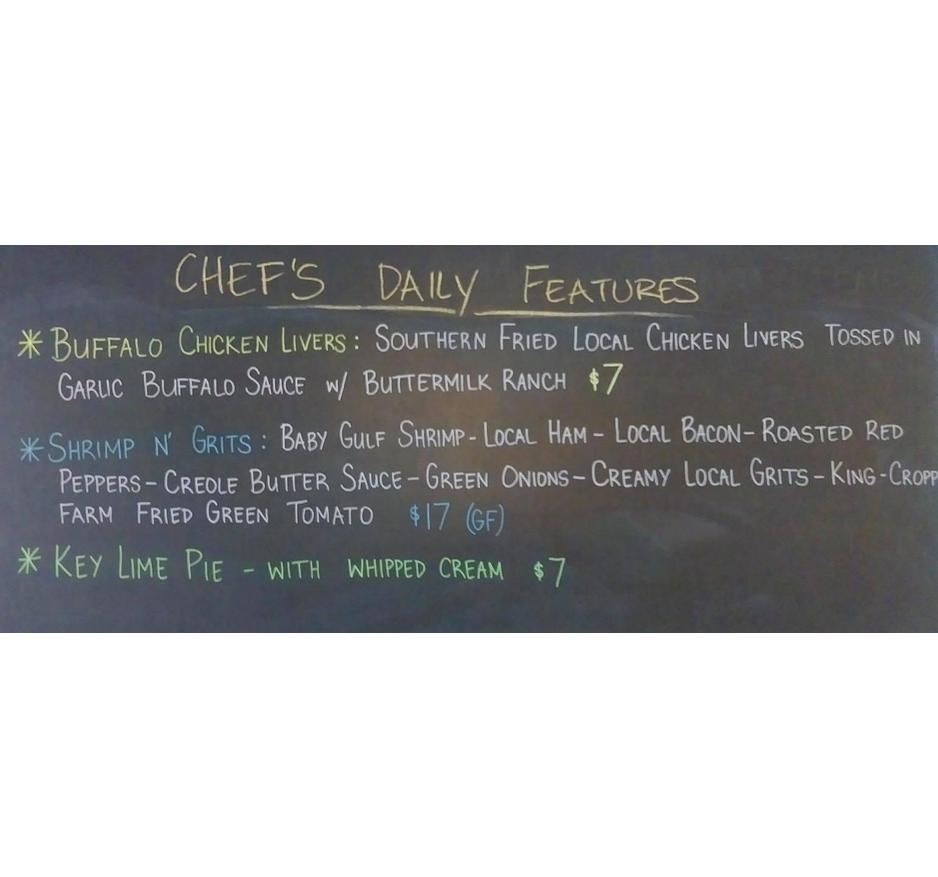 CHEF'S DAILY FEATURES
* BUFFALO CHICKEN LIVERS: SOUTHERN FRIED LOCAL CHICKEN LIVERS TOSSED IN
GARLIC BUFFALO SAUCE W/ BUTTERMILK RANCH $7
* SHRIMP N' GRITS: BABY GULF SHRIMP - LOCAL HAM - LOCAL BACON - ROASTED RED
PEPPERS - CREOLE BUTTER SAUCE - GREEN ONIONS - CREAMY LOCAL GRITS - KING-CROPP
FARM FRIED GREEN TOMATO $17 (GF)
* KEY LIME PIE - WITH WHIPPED CREAM $7